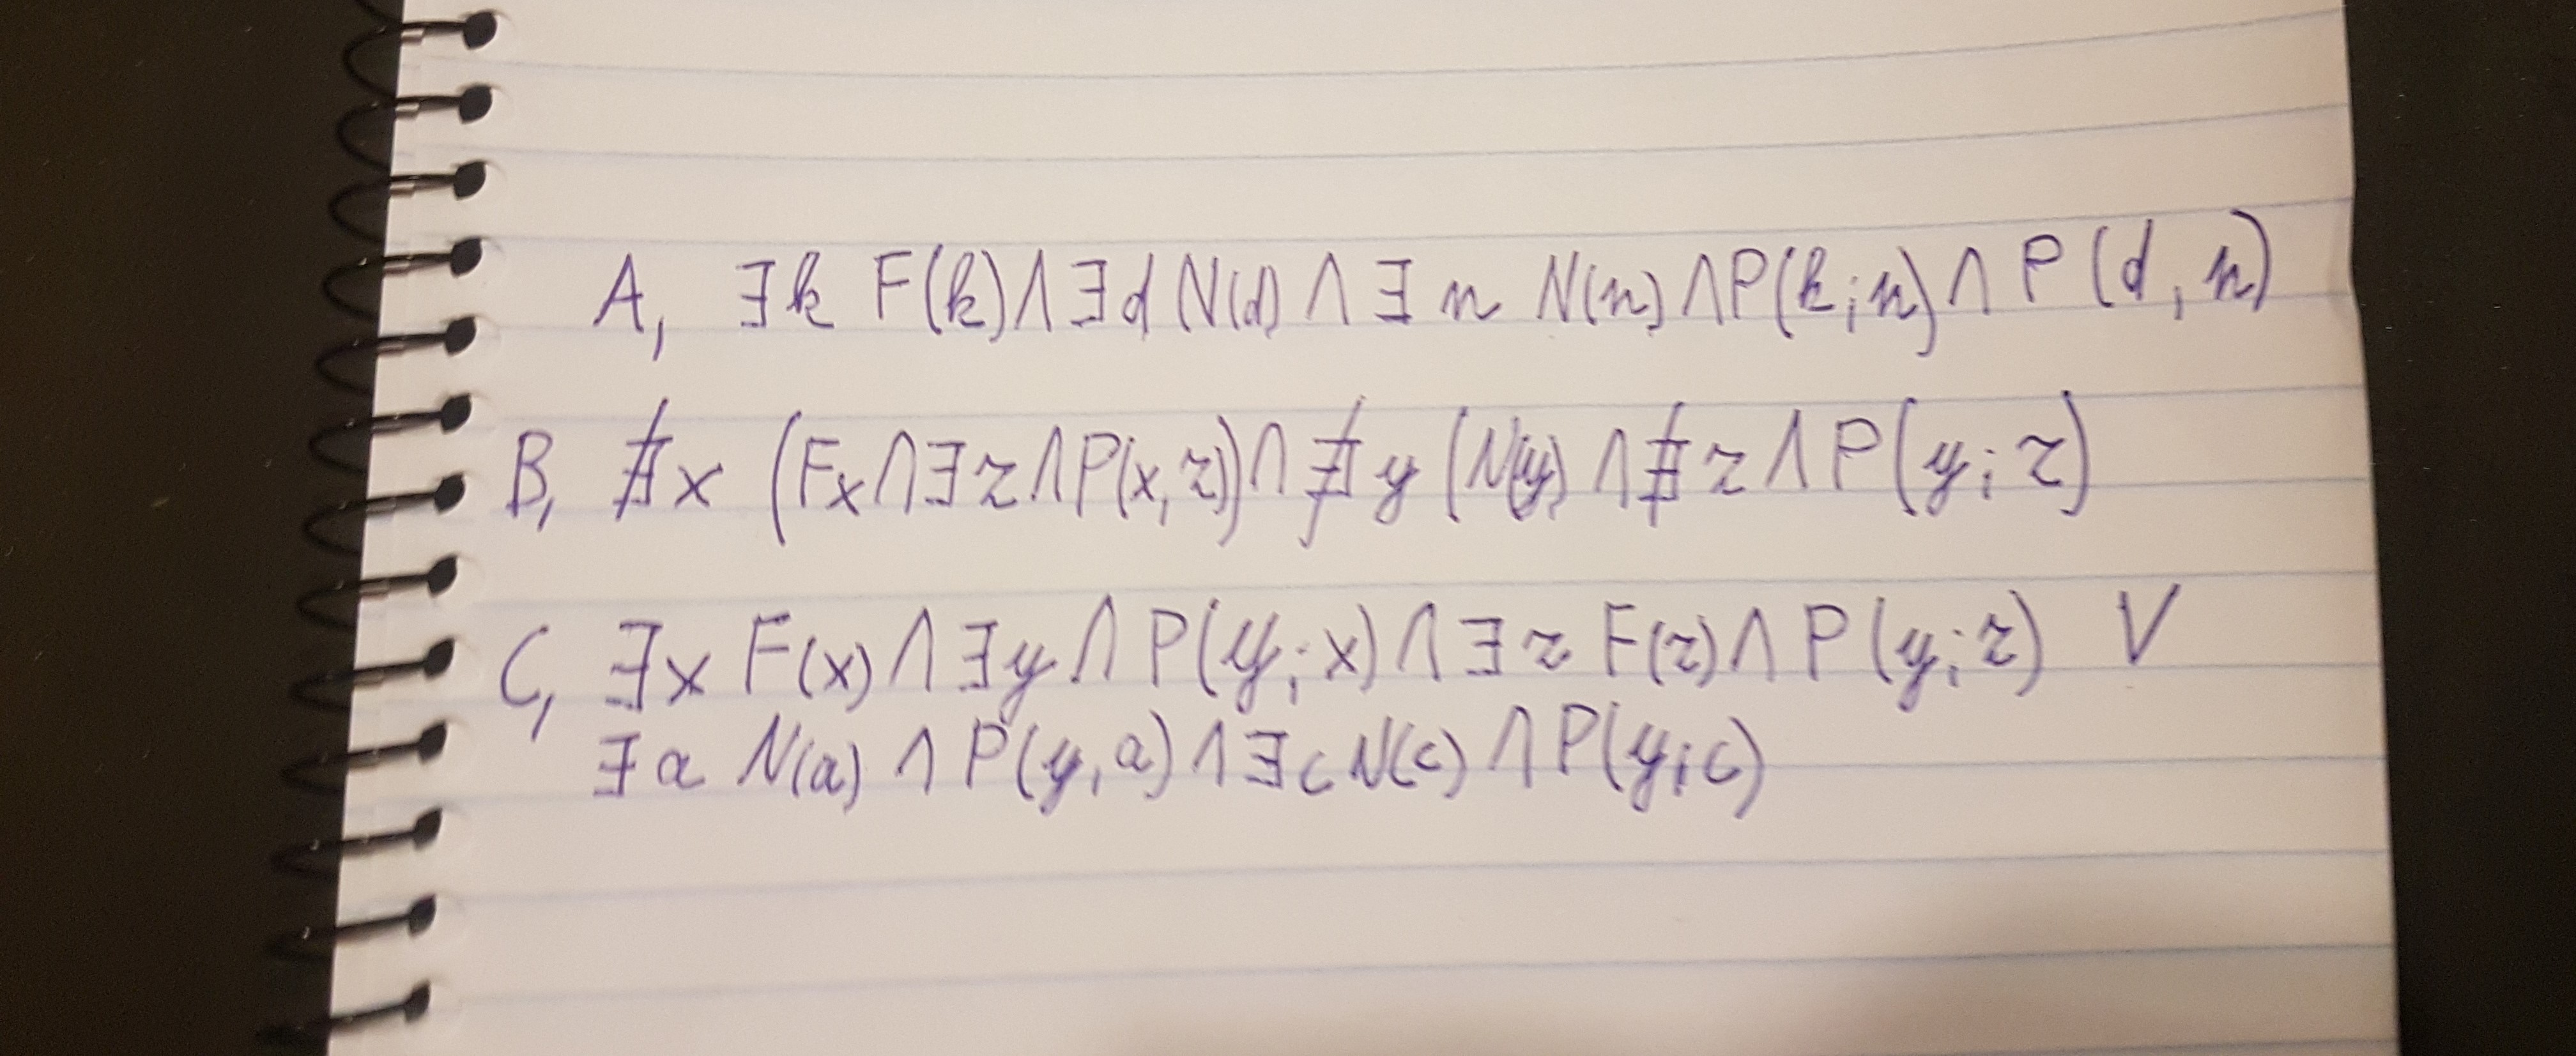 A, ∃k F(k)∧∃d N(d) ∧ ∃ n N(n) ∧P(k;n) ∧ P(d,n)
B, ∄x (Fx∧∃z∧P(x,z))∧∄y (N(y) ∧∄z∧P(y;z)
C, ∃x F(x)∧∃y∧P(y;x)∧∃z F(z)∧P(y;z) ∨
∃a N(a) ∧P(y,a)∧∃c N(c) ∧P(y;c)